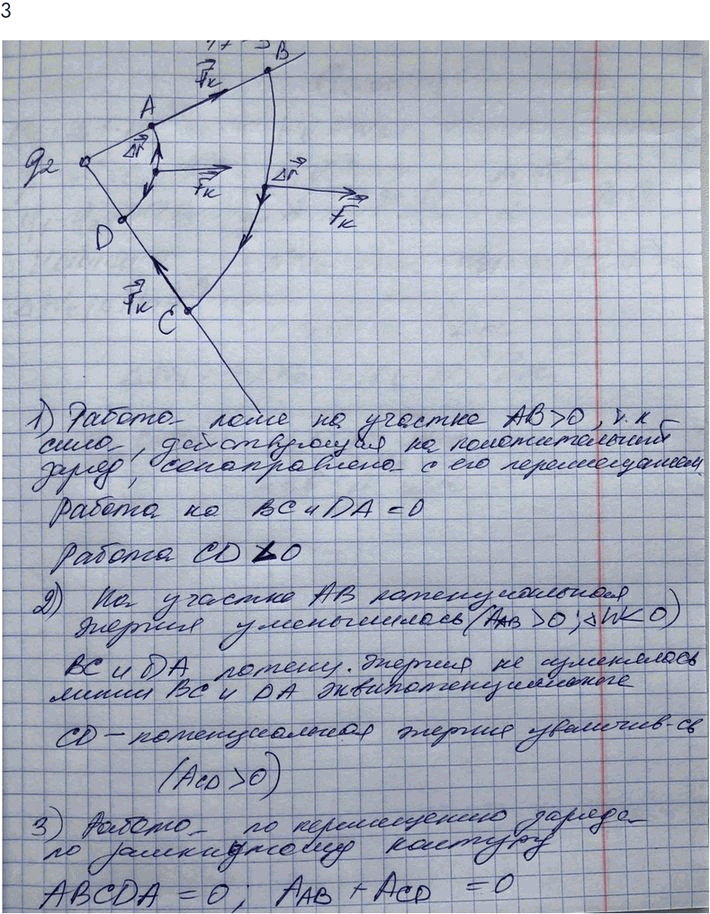 3
B
F⃗к
A
Δr⃗
q₂
Δr⃗
F⃗к
F⃗к
D
F⃗к
C
1) Работа поля на участке AB>0, т.к
сила, действующая на положительный
заряд, сонаправлена с его перемещением
Работа на BC и DA = 0
Работа CD < 0
2) На участке AB потенциальная
энергия уменьшилась (A_AB > 0; ΔW<0)
BC и DA потенц. энергия не изменялась
линии BC и DA эквипотенциальные
CD – потенциальная энергия увеличив-сь
(A_CD > 0)
3) Работа по перемещению заряда
по замкнутому контуру
ABCDA = 0; A_AB + A_CD = 0